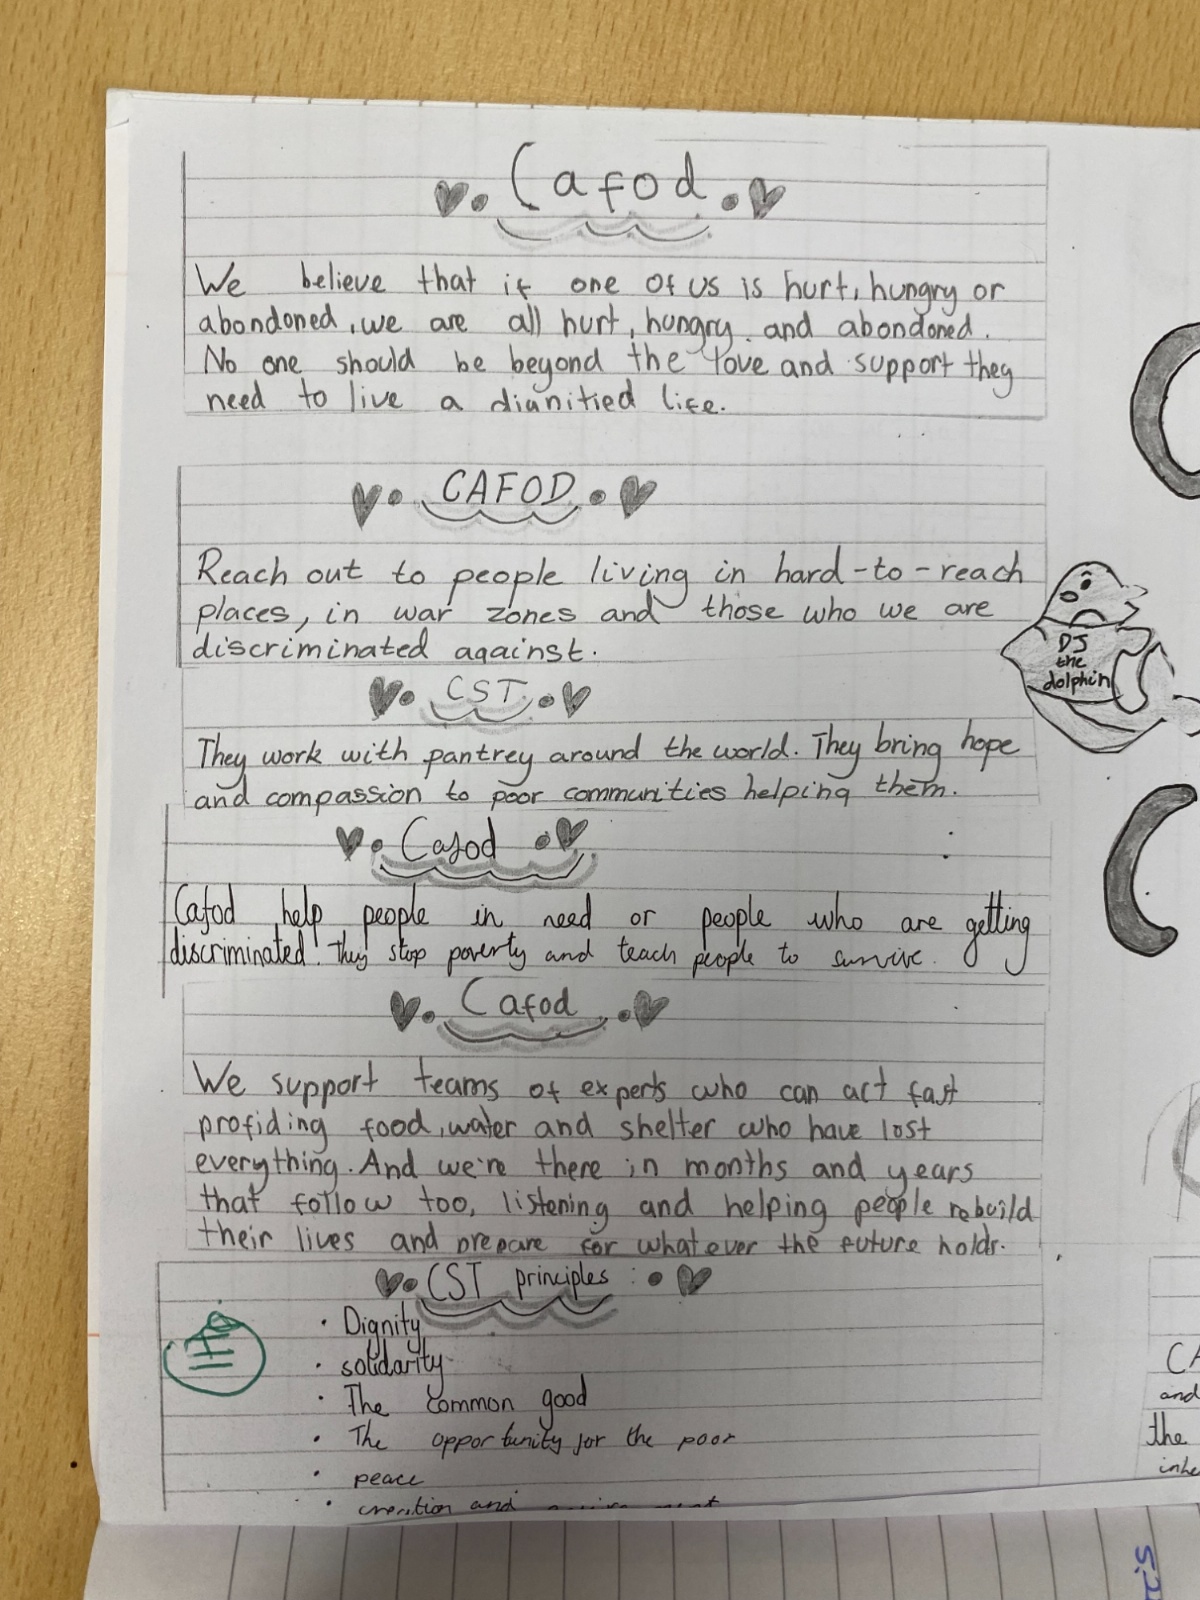 Cafod
We believe that if one of us is hurt, hungry or
abondoned, we are all hurt, hungry and abondoned.
No one should be beyond the love and support they
need to live a dignified life.
CAFOD
Reach out to people living in hard-to-reach
places, in war zones and those who we are
discriminated against.
CST
They work with pantrey around the world. They bring hope
and compassion to poor communities helping them.
Cafod
Cafod help people in need or people who are getting
discriminated. They stop poverty and teach people to survive.
Cafod
We support teams of experts who can act fast
profiding food, water and shelter who have lost
everything. And we're there in months and years
that follow too, listening and helping people rebuild
their lives and prepare for whatever the future holds.
CST principles:
• Dignity
• solidarity
• The common good
• The opportunity for the poor
• peace
• creation and
DJ
the
dolphin
C
C
CA
and
the
inhe